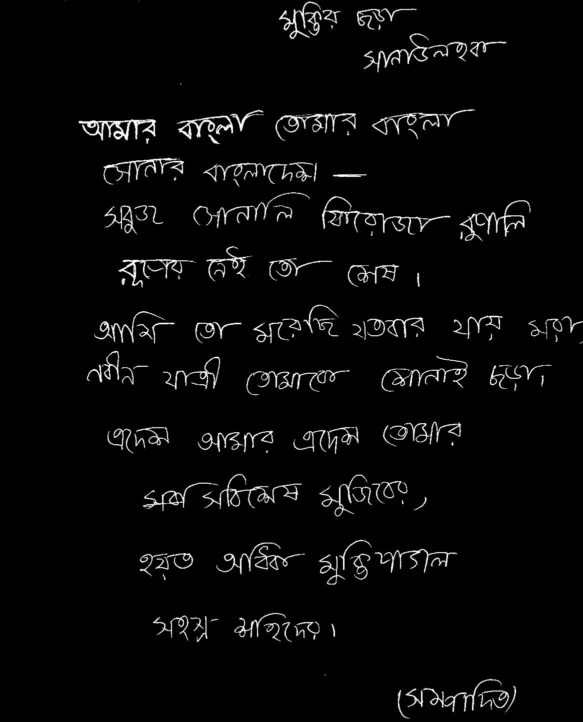 মুক্তির ছড়া
সানাউল হক
আমার বাংলা তোমার বাংলা
সোনার বাংলাদেশ —
সবুজ সোনালি ফিরোজা রুপালি
রূপের নেই তো শেষ ।
আমি তো মরেছি যতবার যায় মরা,
নবীন যাত্রী তোমাকে শোনাই ছড়া।
এদেশ আমার এদেশ তোমার
সবিশেষ মুজিবের,
হয়ত অধিক মুক্তিপাগল
সহস্র শহিদের।
(সম্পাদিত)